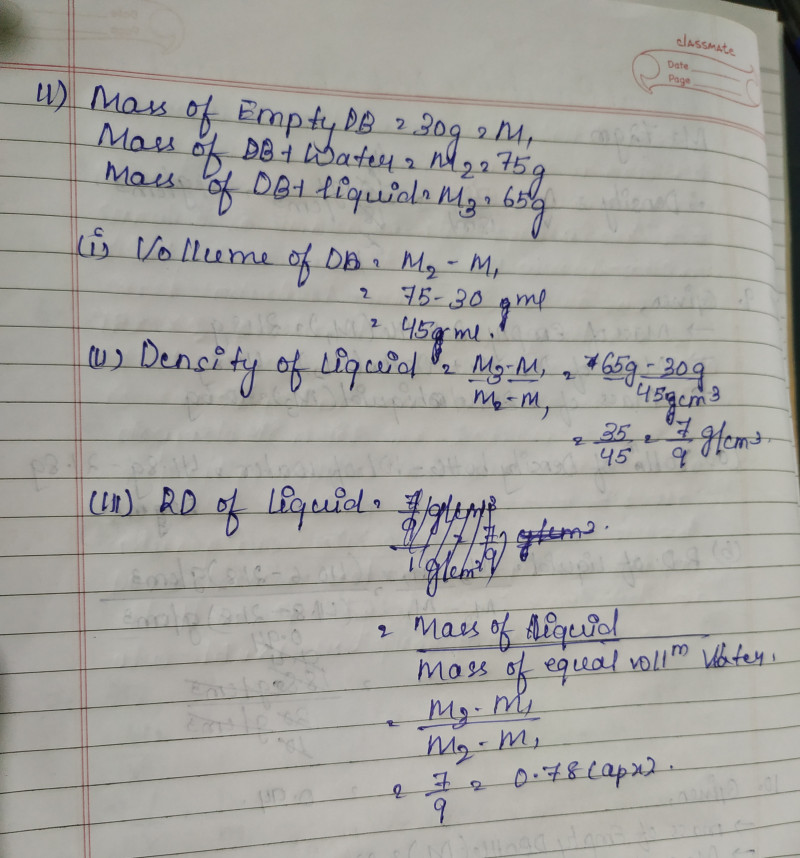 classmate
Date
Page
11) Mass of Empty DB = 30g = M₁
Mass of DB + Water = M₂ = 75g
Mass of DB + liquid = M₃ = 65g
(i) Vollume of DB = M₂ - M₁
= 75-30 g ml
= 45g ml.
(ii) Density of Liquid = M₃-M₁ / M₂-M₁ = 65g - 30g / 45gcm3
= 35/45 = 7/9 g/cm³.
(iii) RD of Liquid = 7/9 g/cm³ / 1 g/cm³ = 7/9 g/cm³.
= Mass of Liquid
Mass of equal vollᵐ Water.
= M₃ - M₁
M₂ - M₁
= 7/9 = 0.78 (apx).